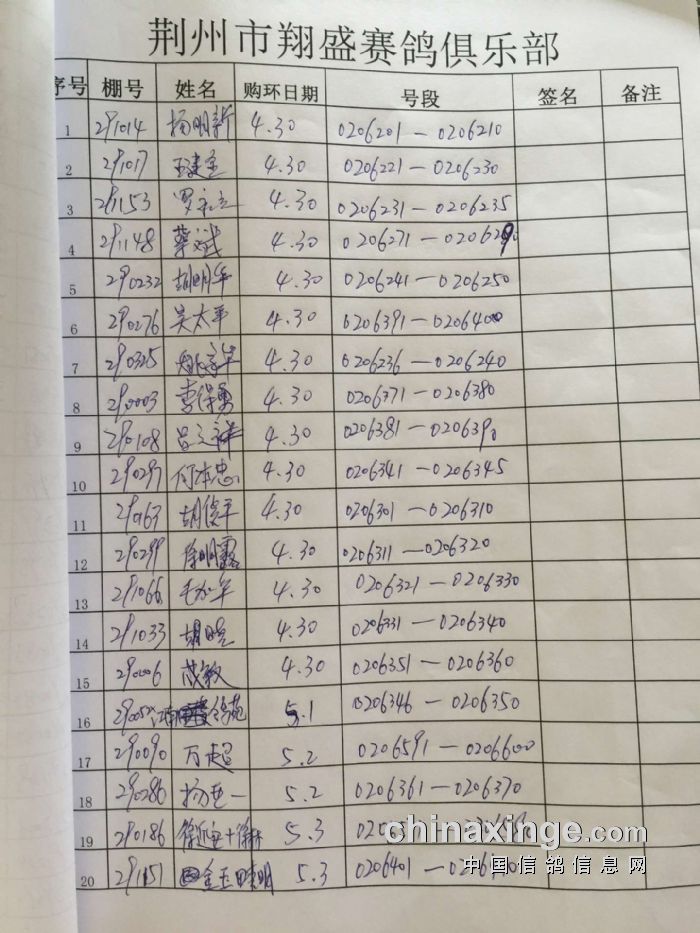 荆州市翔盛赛鸽俱乐部
序号 棚号 姓名 购环日期 号段 签名 备注
1 291014 杨明新 4.30 0206201—0206210
2 291017 王建全 4.30 0206221—0206230
3 291153 罗 4.30 0206231—0206235
4 291148 蔡斌 4.30 0206271—02062
5 290232 胡明华 4.30 0206241—0206250
6 290276 吴太平 4.30 0206391—0206400
7 290325 4.30 0206236—0206240
8 290003 李保勇 4.30 0206371—0206380
9 290108 吕 4.30 0206381—0206390
10 290297 何本忠 4.30 0206341—0206345
11 胡俊平 4.30 0206301—0206310
12 290299 徐明露 4.30 0206311—0206320
13 291066 毛 4.30 0206321—0206330
14 291033 胡晓 4.30 0206331—0206340
15 290006 敏 4.30 0206351—0206360
16 江南 鸽苑 5.1 0206346—0206350
17 290090 万超 5.2 0206591—0206600
18 290286 杨 一 5.2 0206361—0206370
19 290186 5.3
20 291151 5.3 0206401—
chinaxinge.com
中国信鸽信息网